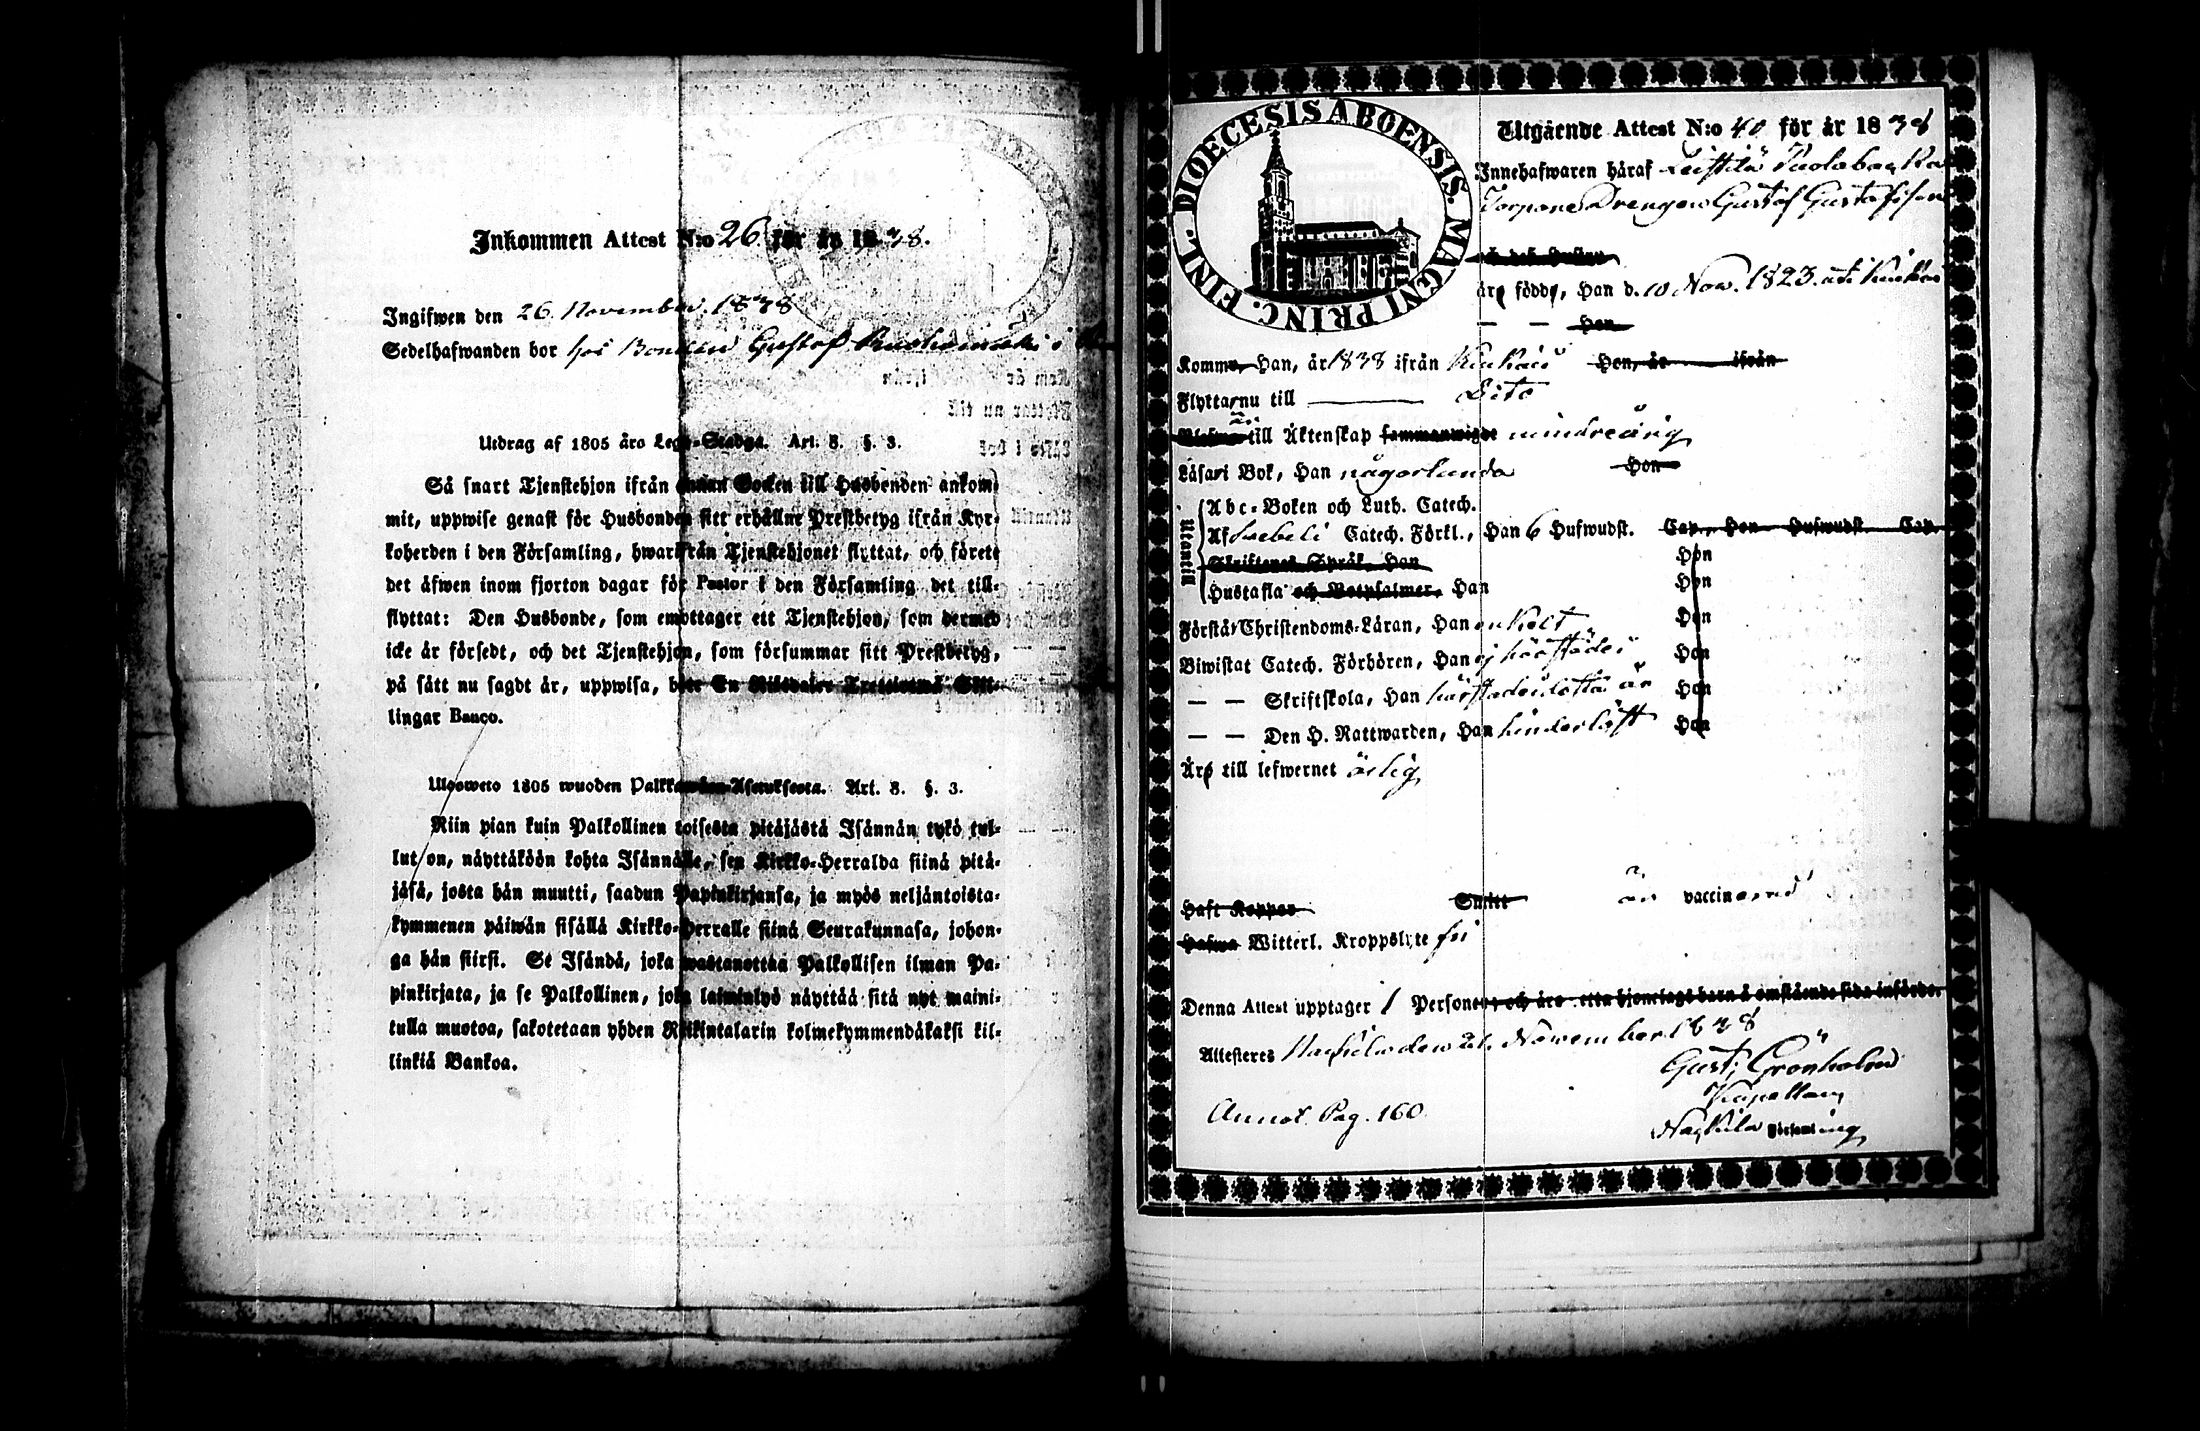 Inkommen Attest N:o 26 för år 1838.
Ingifwen den 26 November 1838
Sedelhafwanden bor hos Bonden Gustaf i
Utdrag af 1805 års Lego-Stadga. Art. 3. §. 3.
Så snart Tjenstehjon ifrån annan Socken till Husbonden ankom-
mit, uppwise genast för Husbonden sitt erhållne Prestbetyg ifrån Kyr-
koherden i den Församling, hwarifrån Tjenstehjonet flyttat, och förete
det äfwen inom fjorton dagar för Pastor i den Församling det till-
flyttat: Den Husbonde, som emottager ett Tjenstehjon, som dermed
icke är försedt, och det Tjenstehjon, som försummar sitt Prestbetyg,
på sätt nu sagdt är, uppwisa, böte En Riksdaler Trettiotwå Skil-
lingar Banco.
Ulosweto 1805 wuoden Palkkawäen-Asetuksesta. Art. 3. §. 3.
Niin pian kuin Palkollinen toisesta pitäjästä Isännän tykö tul-
lut on, näyttäköön kohta Isännälle, sen Kirkko-Herralda siinä pitä-
jäsä, josta hän muutti, saadun Papinkirjansa, ja myös neljäntoista-
kymmenen päiwän sisällä Kirkko-Herralle siinä Seurakunnasa, johon-
ga hän siirsi. Se Isändä, joka wastanottaa Palkollisen ilman Pa-
pinkirjata, ja se Palkollinen, joka laiminlyö näyttää sitä nyt maini-
tulla muotoa, sakotetaan yhden Riikintalarin kolmekymmendäkaksi kil-
linkiä Bankoa.
DIOECESIS ABOENSIS. MAGNI PRINC. FINL.
Utgående Attest N:o 40 för år 1838
Innehafwaren häraf Leistilä
Torpare Drengen Gustaf Gustafsson
och dess Hustru
äro födde, Han d. 10 Nov. 1823. uti Kiukais
— — Hon
Komme, Han, år 1838 ifrån Kiukais Hon, år ifrån
Flyttar nu till Dito
är
till Äktenskap sammanwigde minderårig
Läsa i Bok, Han någorlunda Hon
Utantill
Abc-Boken och Luth. Catech.
Af Svebeli Catech. Förkl., Han 6 Hufwudst. Cap., Hon Hufwudst. Cap.
Skriftenes Språk, Han Hon
Hustafla och Botpsalmer, Han Hon
Förstår Christendoms-Läran, Han enkelt Hon
Biwistat Catech. Förhören, Han ej härstädes Hon
— — Skriftskola, Han Hon
— — Den H. Nattwarden, Han hinderlöst Hon
Äro till lefwernet ärlig
Haft Koppor Smitt är vaccinerad
Hafwa Witterl. Kroppslyte fri
Denna Attest upptager 1 Personer, och äro detta hjonelags barn å omstående sida införde.
Attesteres Nackila den 21 November 1838
Gust: Grönholm
Kapellan
Nackila Församling
Annot. Pag. 160